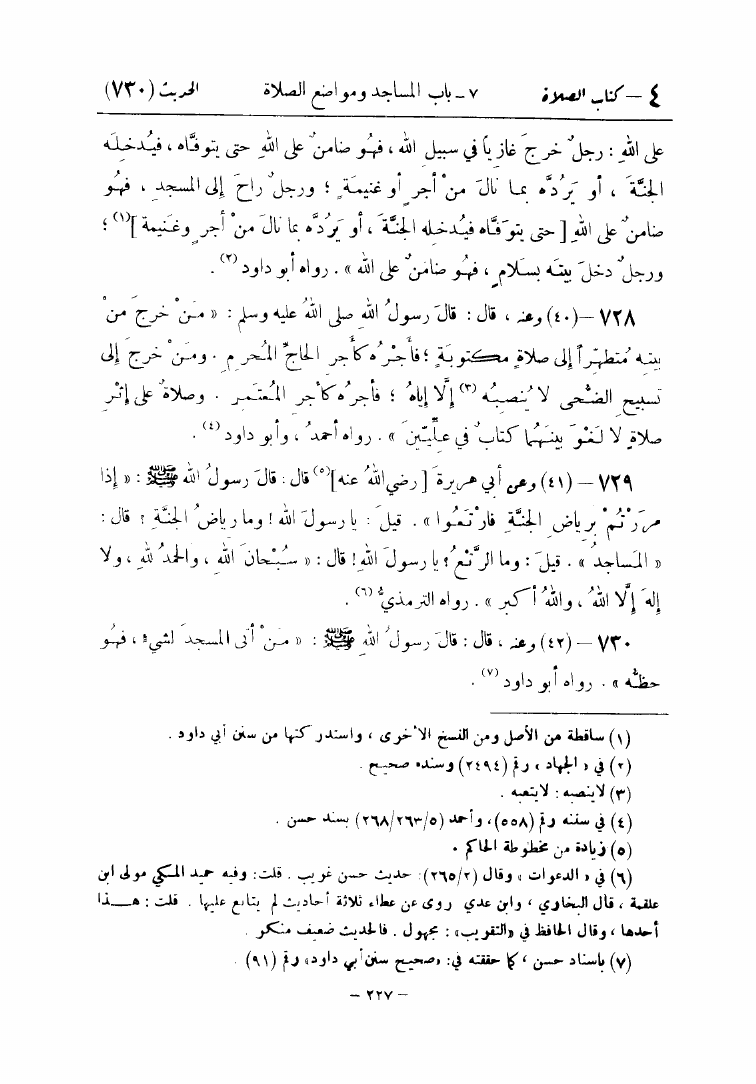 ٤ – كتاب الصلاة ٧ - باب المساجد ومواضع الصلاة الحديث (٧٣٠)
على اللهِ : رجلٌ خرجَ غازياً في سبيل الله ، فهُو ضامنٌ على اللهِ حتى يتوفَّاه ، فيُدخلِه
الجنَّةَ ، أو يَرُدَّه بمـا نالَ منْ أجرٍ أو غنيمةٍ ؛ ورجلٌ راحَ إلى المسجد ، فهُو
ضامنٌ على اللهِ [ حتى يتوَفَّاه فيُدخله الجنَّةَ ، أو يَرُدَّه بما نال منْ أجرٍ وغَنيمة ](١) ؛
ورجلٌ دخلَ بيتَه بسَلامٍ ، فهُو ضامنٌ على الله » . رواه أبو داود (٢) .
٧٢٨ –(٤٠) وعنه ، قال : قالَ رسولُ اللهِ صلى اللهُ عليه وسلم : « مَـنْ خرجَ منْ
بيتِـه مُتطهِّراً إلى صلاةٍ مكتوبةٍ ؛ فأجْرُه كأجر الحاجِّ المُحرِمِ . ومَـنْ خرجَ إلى
تسبيحِ الضُّحى لا يُنصِبُه (٣) إلَّا إياهُ ؛ فأجرُه كأجرِ المُعتَمرِ . وصلاةٌ على إثْرِ
صلاةٍ لا لَغْوَ بينَهُما كتابٌ في علِّيّينَ » . رواه أحمدُ ، وأبو داود (٤) .
٧٢٩ – (٤١) وعن أبي هريرةَ [ رضي اللهُ عنه ](٥) قال : قالَ رسولُ الله ﷺ : « إذا
مررْتُمْ برياضِ الجنَّةِ فارْتَعُوا » . قيلَ : يا رسولَ الله ! وما رياضُ الجنَّةِ ؟ قال :
« المَساجدُ » . قيلَ : وما الرَّتْعُ ؟ يا رسولَ الله ! قال : « سُبْحانَ اللهِ ، والحمدُ للهِ ، ولا
إلهَ إلَّا اللهُ ، واللهُ أكبر » . رواه الترمذيُّ (٦) .
٧٣٠ – (٤٢) وعنه ، قال : قالَ رسولُ اللهِ ﷺ : « مَـنْ أتى المسجدَ لشيءٍ ، فهُو
حظُّه » . رواه أبو داود (٧) .
(١) ساقطة من الأصل ومن النسخ الأخرى ، واستدركتها من سنن أبي داود .
(٢) في « الجهاد » رقم (٢٤٩٤) وسنده صحيح .
(٣) لا ينصبه : لا يتعبه .
(٤) في سننه رقم (٥٥٨)، وأحمد (٢٦٨/٢٦٣/٥) بسند حسن .
(٥) زيادة من مخطوطة الحاكم .
(٦) في « الدعوات » وقال (٢٦٥/٢): حديث حسن غريب . قلت: وفيه حميد المكي مولى ابن
علقمة ، قال البخاري ، وابن عدي روى عن عطاء ثلاثة أحاديث لم يتابع عليها . قلت : هـــذا
أحدها ، وقال الحافظ في «التقريب»: مجهول . فالحديث ضعيف منكر .
(٧) بإسناد حسن ، كما حققته في: «صحيح سنن أبي داود» رقم (٩١) .
– ٢٢٧ –